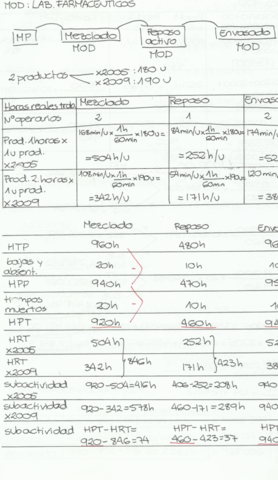 MOD: LAB. FARMACEUTICOS
MP Mezclado Reposo activo Envasado
MOD MOD MOD
2 productos x2005: 180 u
x2009: 190 u
Horas reales trab. Mezclado Reposo Envasado
Nº operarios 2 1 2
Prod. 1 horas x 1 u prod. x2005 168 min/u x 1h/60min x 180u = 504 h/u 84 min/u x 1h/60min x 180u = 252 h/u 174 min/u
Prod. 2 horas x 1 u prod. x2009 108 min/u x 1h/60min x 190u = 342 h/u 54 min/u x 1h/60min x 190u = 171 h/u 120 min/
Mezclado Reposo Enva
HTP 960h 480h 96
bajas y absent. 20h 10h
HPP 940h 470h 95
tiempos muertos 20h 10h
HPT 920h 460h 94
HRT x2005 504h 252h 52
HRT x2009 342h 846h 171h 423h 38
subactividad x2005 920-504=416h 406-252=208h 940
subactividad x2009 920-342=578h 460-171=289h 940
subactividad HPT-HRT= HPT-HRT= HPT
920-846=74 460-423=37 940